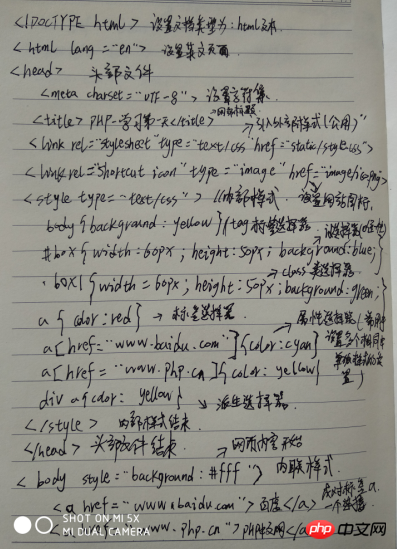 <!DOCTYPE html> 设置文档类型为:html文本
<html lang="en"> 设置英文页面
<head> 头部文件
<meta charset="UTF-8"> 设置字符集
<title>PHP-学习第一天</title> →网页标题 →引入外部样式(公用)
<link rel="stylesheet" type="text/css" href="static/style.css">
<link rel="shortcut icon" type="image" href="image/
<style type="text/css"> //内部样式 设置网站图标
body{background: yellow} //tag标签选择器
#box{width: 60px; height: 50px; background: blue;}
.box1{width = 60px; height: 50px; background: green;} →class类选择器
a{color: red} → 标签选择器
a[href="www.baidu.com"]{color: cyan} →属性选择器
a[href="www.php.cn"]{color: yellow}
div a{color: yellow} → 派生选择器
</style> 内部样式结束
</head> 头部文件结束 →网页内容开始
<body style="background: #fff"> 内联样式
<a href="www.baidu.com">百度</a>
www.php.cn">PHP中文网</a>
SHOT ON MI 5X
MI DUAL CAMERA
php中文网